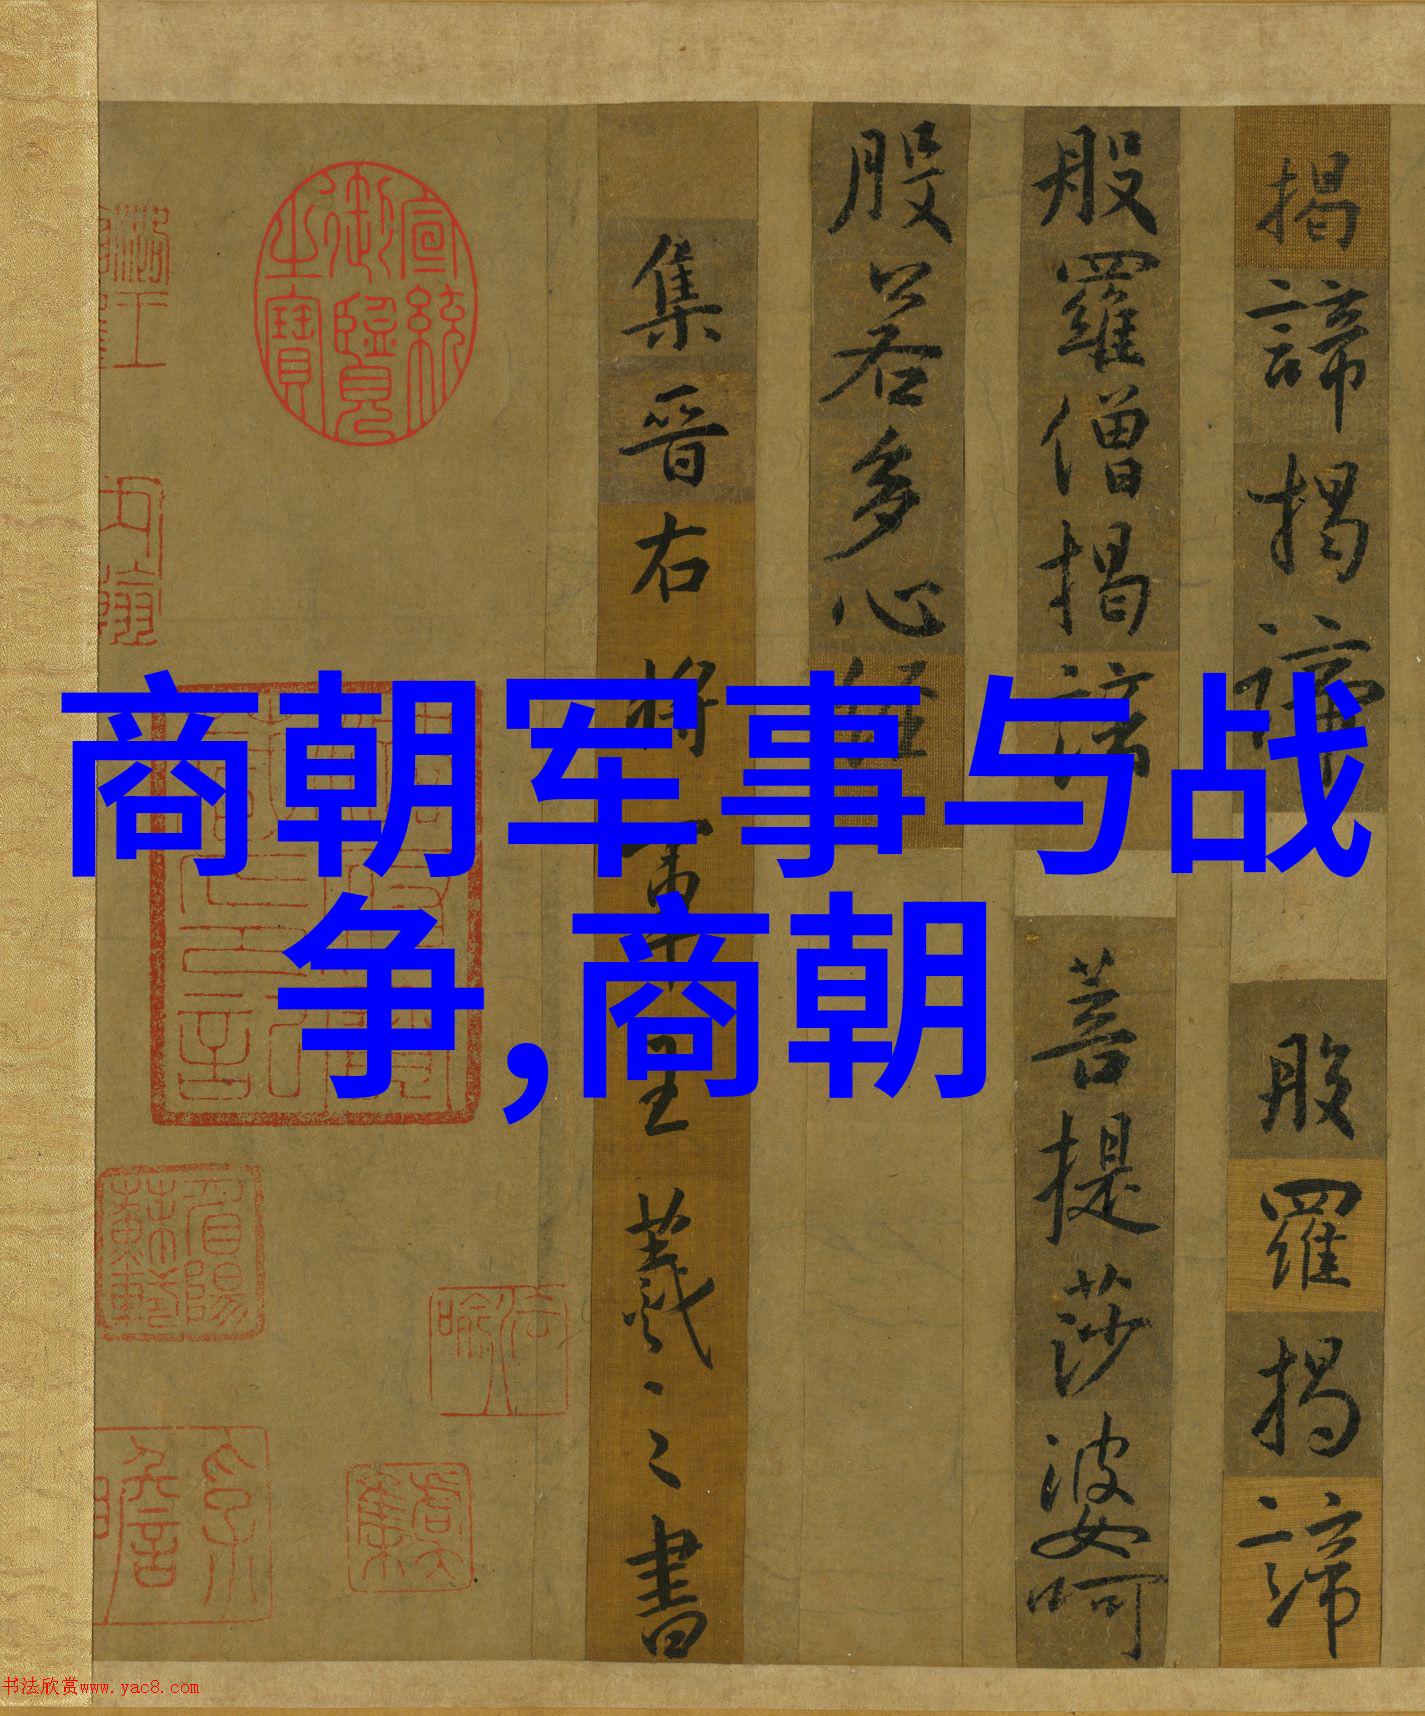 商朝军事与战
争,商朝
揭諦揭諦 般羅揭諦
般羅僧揭諦 菩提莎婆呵
般若多心經
集晉右將軍王羲之書
宣統御覽之寶
书法欣赏www.yac8.com